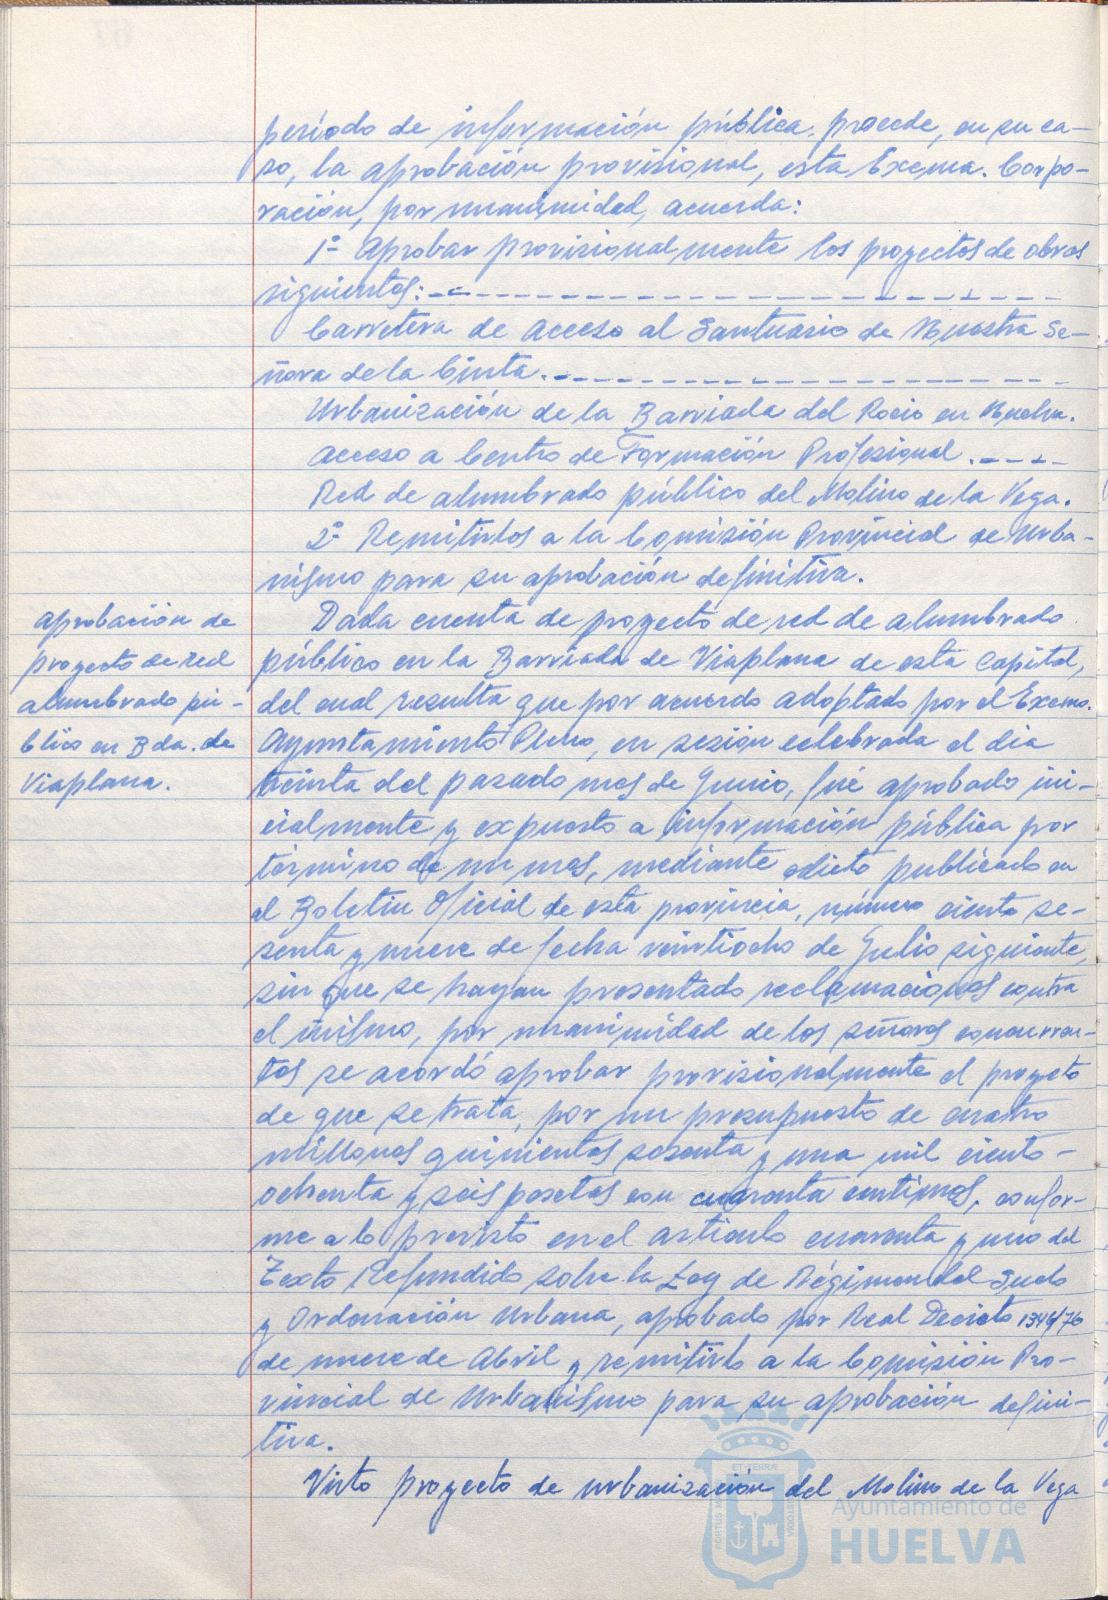 período de información pública, procede, en su ca-
so, la aprobación provisional, esta Excma. Corpo-
ración, por unanimidad, acuerda:
1º Aprobar provisionalmente los proyectos de obras
siguientes:
Carretera de Acceso al Santuario de Nuestra Se-
ñora de la Cinta.
Urbanización de la Barriada del Rocio en Huelva.
Acceso a Centro de Formación Profesional.
Red de alumbrado público del Molino de la Vega.
2º Remitirlos a la Comisión Provincial de Urba-
nismo para su aprobación definitiva.
aprobación de
proyecto de red
alumbrado pú-
blico en Bda. de
Viaplana.
Dada cuenta de proyecto de red de alumbrado
público en la Barriada de Viaplana de esta Capital,
del cual resulta que por acuerdo adoptado por el Excmo.
Ayuntamiento Pleno, en sesión celebrada el dia
treinta del pasado mes de Junio, fué aprobado ini-
cialmente y expuesto a información pública por
término de un mes, mediante edicto publicado en
el Boletin Oficial de esta provincia, número ciento se-
senta y nueve de fecha veintiocho de Julio siguiente,
sin que se hayan presentado reclamaciones contra
el mismo, por unanimidad de los señores concurren-
tes se acordó aprobar provisionalmente el proyecto
de que se trata, por un presupuesto de cuatro
millones quinientas sesenta y una mil ciento
ochenta y seis pesetas con cuarenta centimos, confor-
me a lo previsto en el articulo cuarenta y uno del
Texto Refundido sobre la Ley de Régimen del Suelo
y Ordenación Urbana, aprobado por Real Decreto 1346/76
de nueve de Abril y remitirlo a la Comisión Pro-
vincial de Urbanismo para su aprobación defini-
tiva.
Visto proyecto de urbanización del Molino de la Vega
Ayuntamiento de
HUELVA